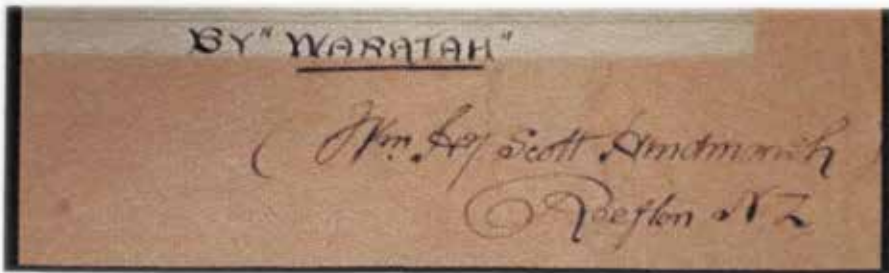 BY "WARATAH"
(Wm. Hy Scott Hindmarsh)
Reefton NZ